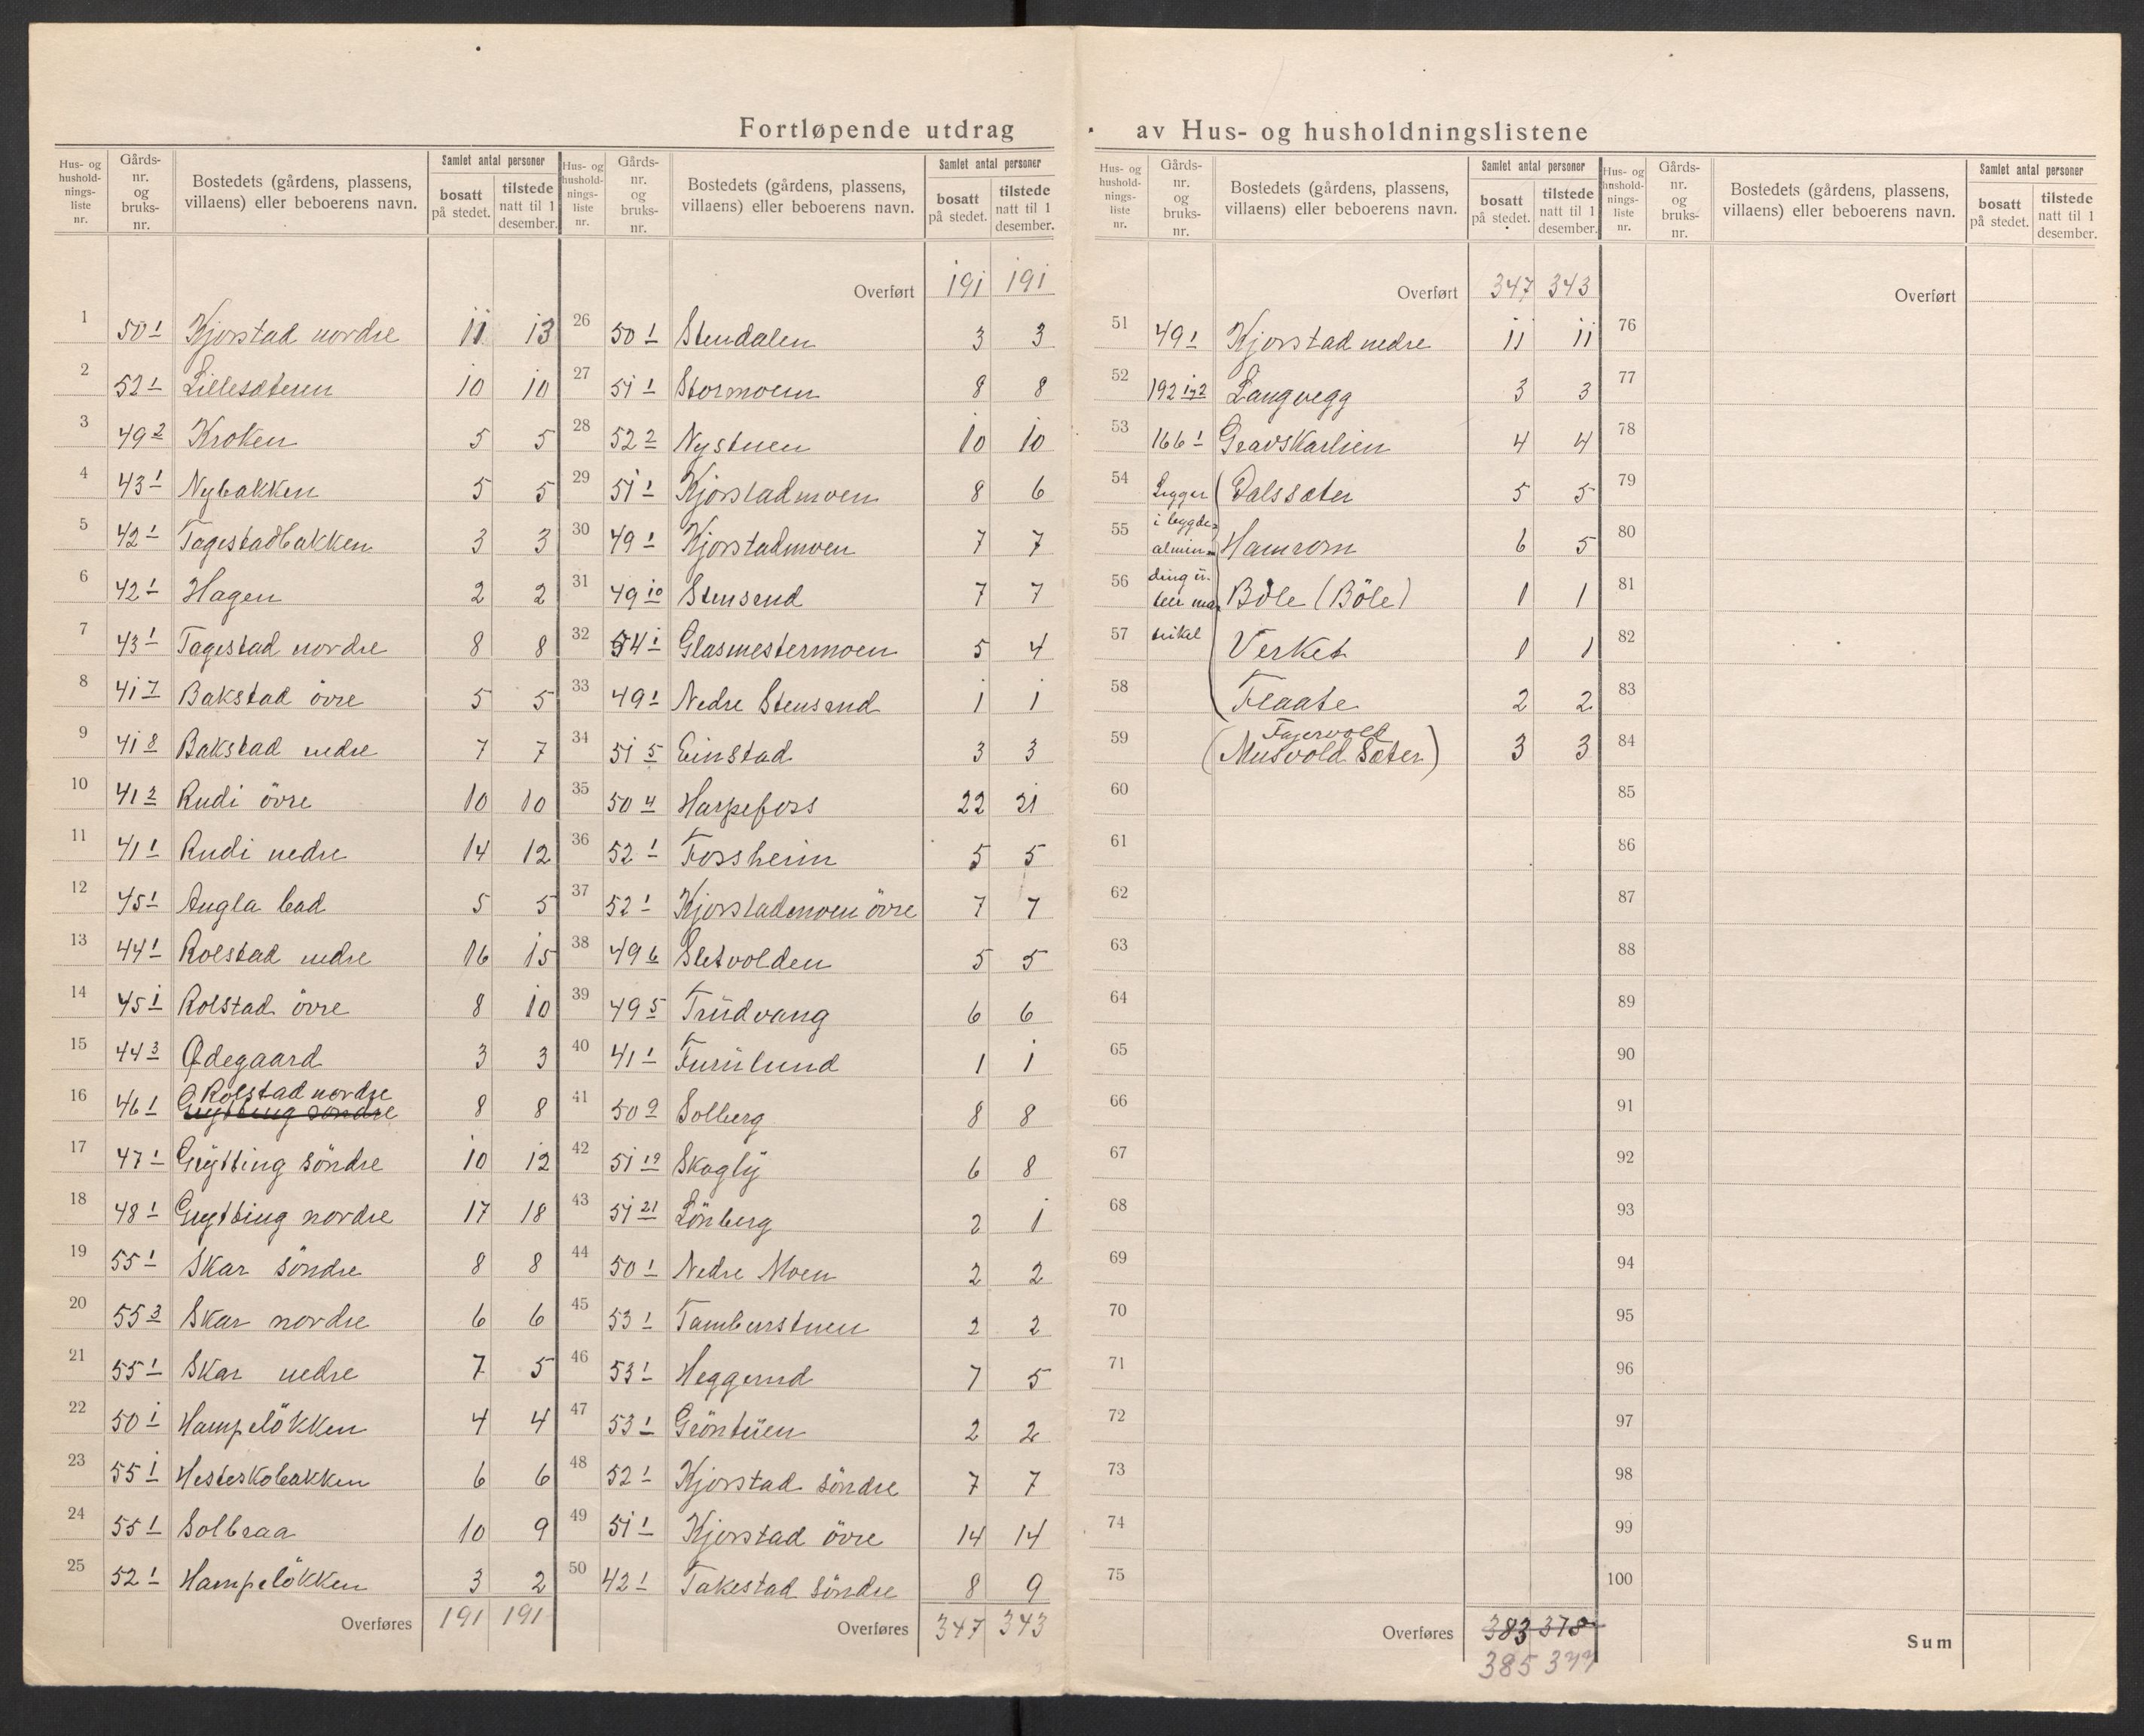 Fortløpende utdrag av Hus- og husholdningslistene
Hus- og hushold-nings-liste nr. | Gårds-nr. og bruks-nr. | Bostedets (gårdens, plassens, villaens) eller beboerens navn. | Samlet antal personer | bosatt på stedet. | tilstede natt til 1 desember.
1 50 1 Kjorstad nordre 11 13
2 52 1 Lillesæteren 10 10
3 49 2 Kroken 5 5
4 43 1 Nybakken 5 5
5 42 1 Tagestadbakken 3 3
6 42 1 Hagen 2 2
7 43 1 Tagestad nordre 8 8
8 41 7 Bakstad övre 5 5
9 41 8 Bakstad nedre 7 7
10 41 2 Rudi övre 10 10
11 41 1 Rudi nedre 14 12
12 45 1 Augla bad 5 5
13 44 1 Rolstad nedre 16 15
14 45 1 Rolstad övre 8 10
15 44 3 Ødegaard 3 3
16 46 1 Rolstad nordre 8 8
Grytting söndre
17 47 1 Grytting söndre 10 12
18 48 1 Grytting nordre 17 18
19 55 1 Skar söndre 8 8
20 55 3 Skar nordre 6 6
21 55 1 Skar nedre 7 5
22 50 1 Hampelökken 4 4
23 55 1 Hesteskobakken 6 6
24 55 1 Solbraa 10 9
25 52 1 Hampelökken 3 2
Overføres 191 191
Hus- og hushold-nings-liste nr. | Gårds-nr. og bruks-nr. | Bostedets (gårdens, plassens, villaens) eller beboerens navn. | Samlet antal personer | bosatt på stedet. | tilstede natt til 1 desember.
Overført 191 191
26 50 1 Stendalen 3 3
27 51 1 Stormoen 8 8
28 52 2 Nystuen 10 10
29 51 1 Kjorstadmoen 8 6
30 49 1 Kjorstadmoen 7 7
31 49 10 Stensrud 7 7
32 54 1 Glasmestermoen 5 4
33 49 1 Nedre Stensrud 1 1
34 51 5 Einstad 3 3
35 50 4 Harpefoss 22 21
36 52 1 Forsheim 5 5
37 52 1 Kjorstadmoen övre 7 7
38 49 6 Sletvolden 5 5
39 49 5 Trudvang 6 6
40 41 1 Furulund 1 1
41 50 9 Solberg 8 8
42 51 19 Skogly 6 8
43 51 21 Lönberg 2 1
44 50 1 Nedre Moen 2 2
45 53 1 Tamburstuen 2 2
46 53 1 Heggerud 7 5
47 53 1 Gröntuen 2 2
48 52 1 Kjorstad söndre 7 7
49 51 1 Kjorstad övre 14 14
50 42 1 Takestad söndre 8 9
Overføres 347 343
Hus- og hushold-nings-liste nr. | Gårds-nr. og bruks-nr. | Bostedets (gårdens, plassens, villaens) eller beboerens navn. | Samlet antal personer | bosatt på stedet. | tilstede natt til 1 desember.
Overført 347 343
51 49 1 Kjorstad nedre 11 11
52 192 1 og 2 Langvegg 3 3
53 166 1 Gravskarlien 4 4
54 Ligger Dalssæter 5 5
i bygde-
55 almin- Hamrom 6 5
ding u-
56 ten ma- Bøle (Böle) 1 1
57 trikel Verket 1 1
58 Flaate 2 2
Fagervold
59 (Musvold Sæter) 3 3
60
61
62
63
64
65
66
67
68
69
70
71
72
73
74
75
Overføres 383 378
385 377
Hus- og hushold-nings-liste nr. | Gårds-nr. og bruks-nr. | Bostedets (gårdens, plassens, villaens) eller beboerens navn. | Samlet antal personer | bosatt på stedet. | tilstede natt til 1 desember.
Overført
76
77
78
79
80
81
82
83
84
85
86
87
88
89
90
91
92
93
94
95
96
97
98
99
100
Sum